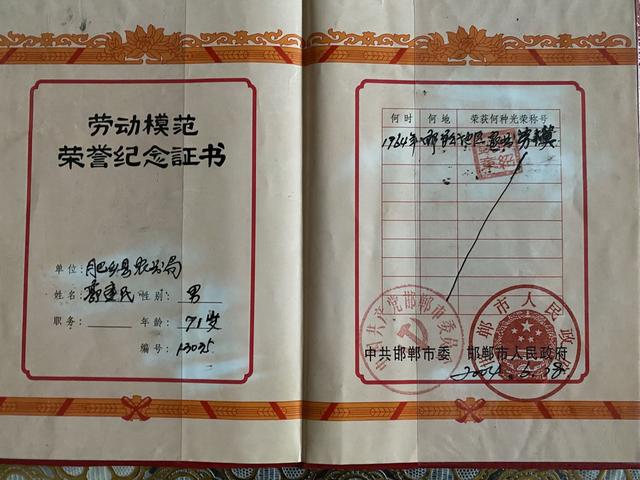 劳动模范
荣誉纪念证书
单位：肥乡县农业局
姓名：郭建民 性别：男
职务： 年龄：71岁
编号：13035
何时 何地 荣获何种光荣称号
1964年 邯郸地区 劳模
中共邯郸市委 邯郸市人民政府
中国共产党邯郸市委员会
邯郸市人民政府